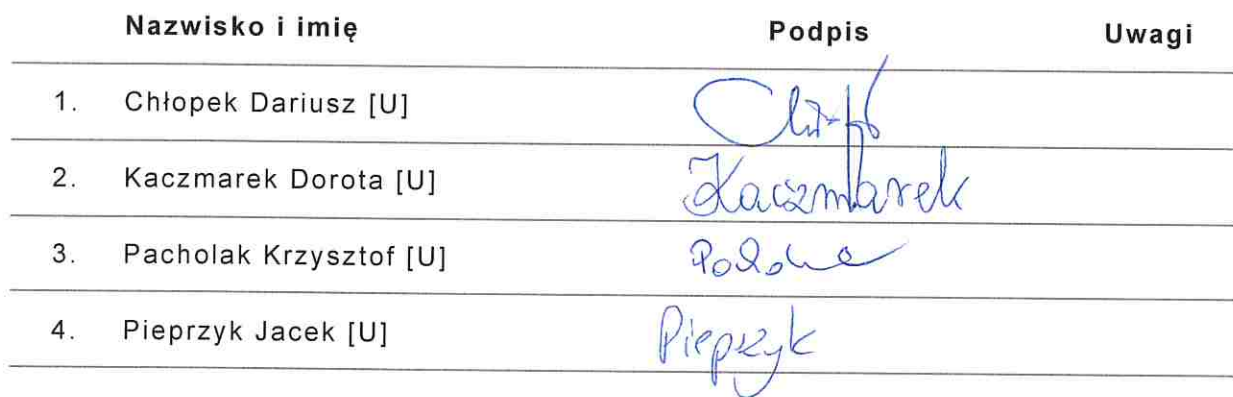 Nazwisko i imię Podpis Uwagi
1. Chłopek Dariusz [U]
2. Kaczmarek Dorota [U] Kaczmarek
3. Pacholak Krzysztof [U]
4. Pieprzyk Jacek [U] Pieprzyk